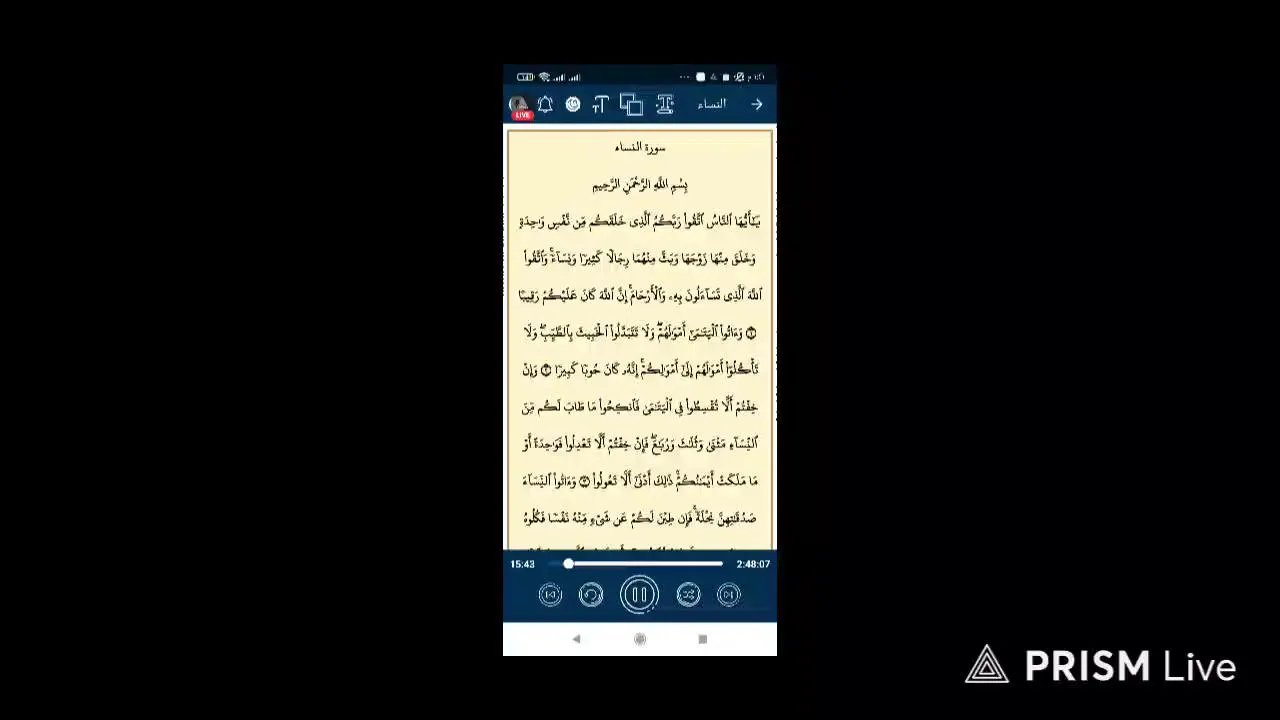 النساء
LIVE
سورة النساء
بِسْمِ اللَّهِ الرَّحْمَٰنِ الرَّحِيمِ
يَـٰٓأَيُّهَا ٱلنَّاسُ ٱتَّقُوا۟ رَبَّكُمُ ٱلَّذِى خَلَقَكُم مِّن نَّفْسٍ وَٰحِدَةٍ
وَخَلَقَ مِنْهَا زَوْجَهَا وَبَثَّ مِنْهُمَا رِجَالًا كَثِيرًا وَنِسَآءً ۚ وَٱتَّقُوا۟
ٱللَّهَ ٱلَّذِى تَسَآءَلُونَ بِهِۦ وَٱلْأَرْحَامَ ۚ إِنَّ ٱللَّهَ كَانَ عَلَيْكُمْ رَقِيبًا
۝١ وَءَاتُوا۟ ٱلْيَتَـٰمَىٰٓ أَمْوَٰلَهُمْ ۖ وَلَا تَتَبَدَّلُوا۟ ٱلْخَبِيثَ بِٱلطَّيِّبِ ۖ وَلَا
تَأْكُلُوٓا۟ أَمْوَٰلَهُمْ إِلَىٰٓ أَمْوَٰلِكُمْ ۚ إِنَّهُۥ كَانَ حُوبًا كَبِيرًا ۝٢ وَإِنْ
خِفْتُمْ أَلَّا تُقْسِطُوا۟ فِى ٱلْيَتَـٰمَىٰ فَٱنكِحُوا۟ مَا طَابَ لَكُم مِّنَ
ٱلنِّسَآءِ مَثْنَىٰ وَثُلَـٰثَ وَرُبَـٰعَ ۖ فَإِنْ خِفْتُمْ أَلَّا تَعْدِلُوا۟ فَوَٰحِدَةً أَوْ
مَا مَلَكَتْ أَيْمَـٰنُكُمْ ۚ ذَٰلِكَ أَدْنَىٰٓ أَلَّا تَعُولُوا۟ ۝٣ وَءَاتُوا۟ ٱلنِّسَآءَ
صَدُقَـٰتِهِنَّ نِحْلَةً ۚ فَإِن طِبْنَ لَكُمْ عَن شَىْءٍ مِّنْهُ نَفْسًا فَكُلُوهُ
15:43 2:48:07
PRISM Live